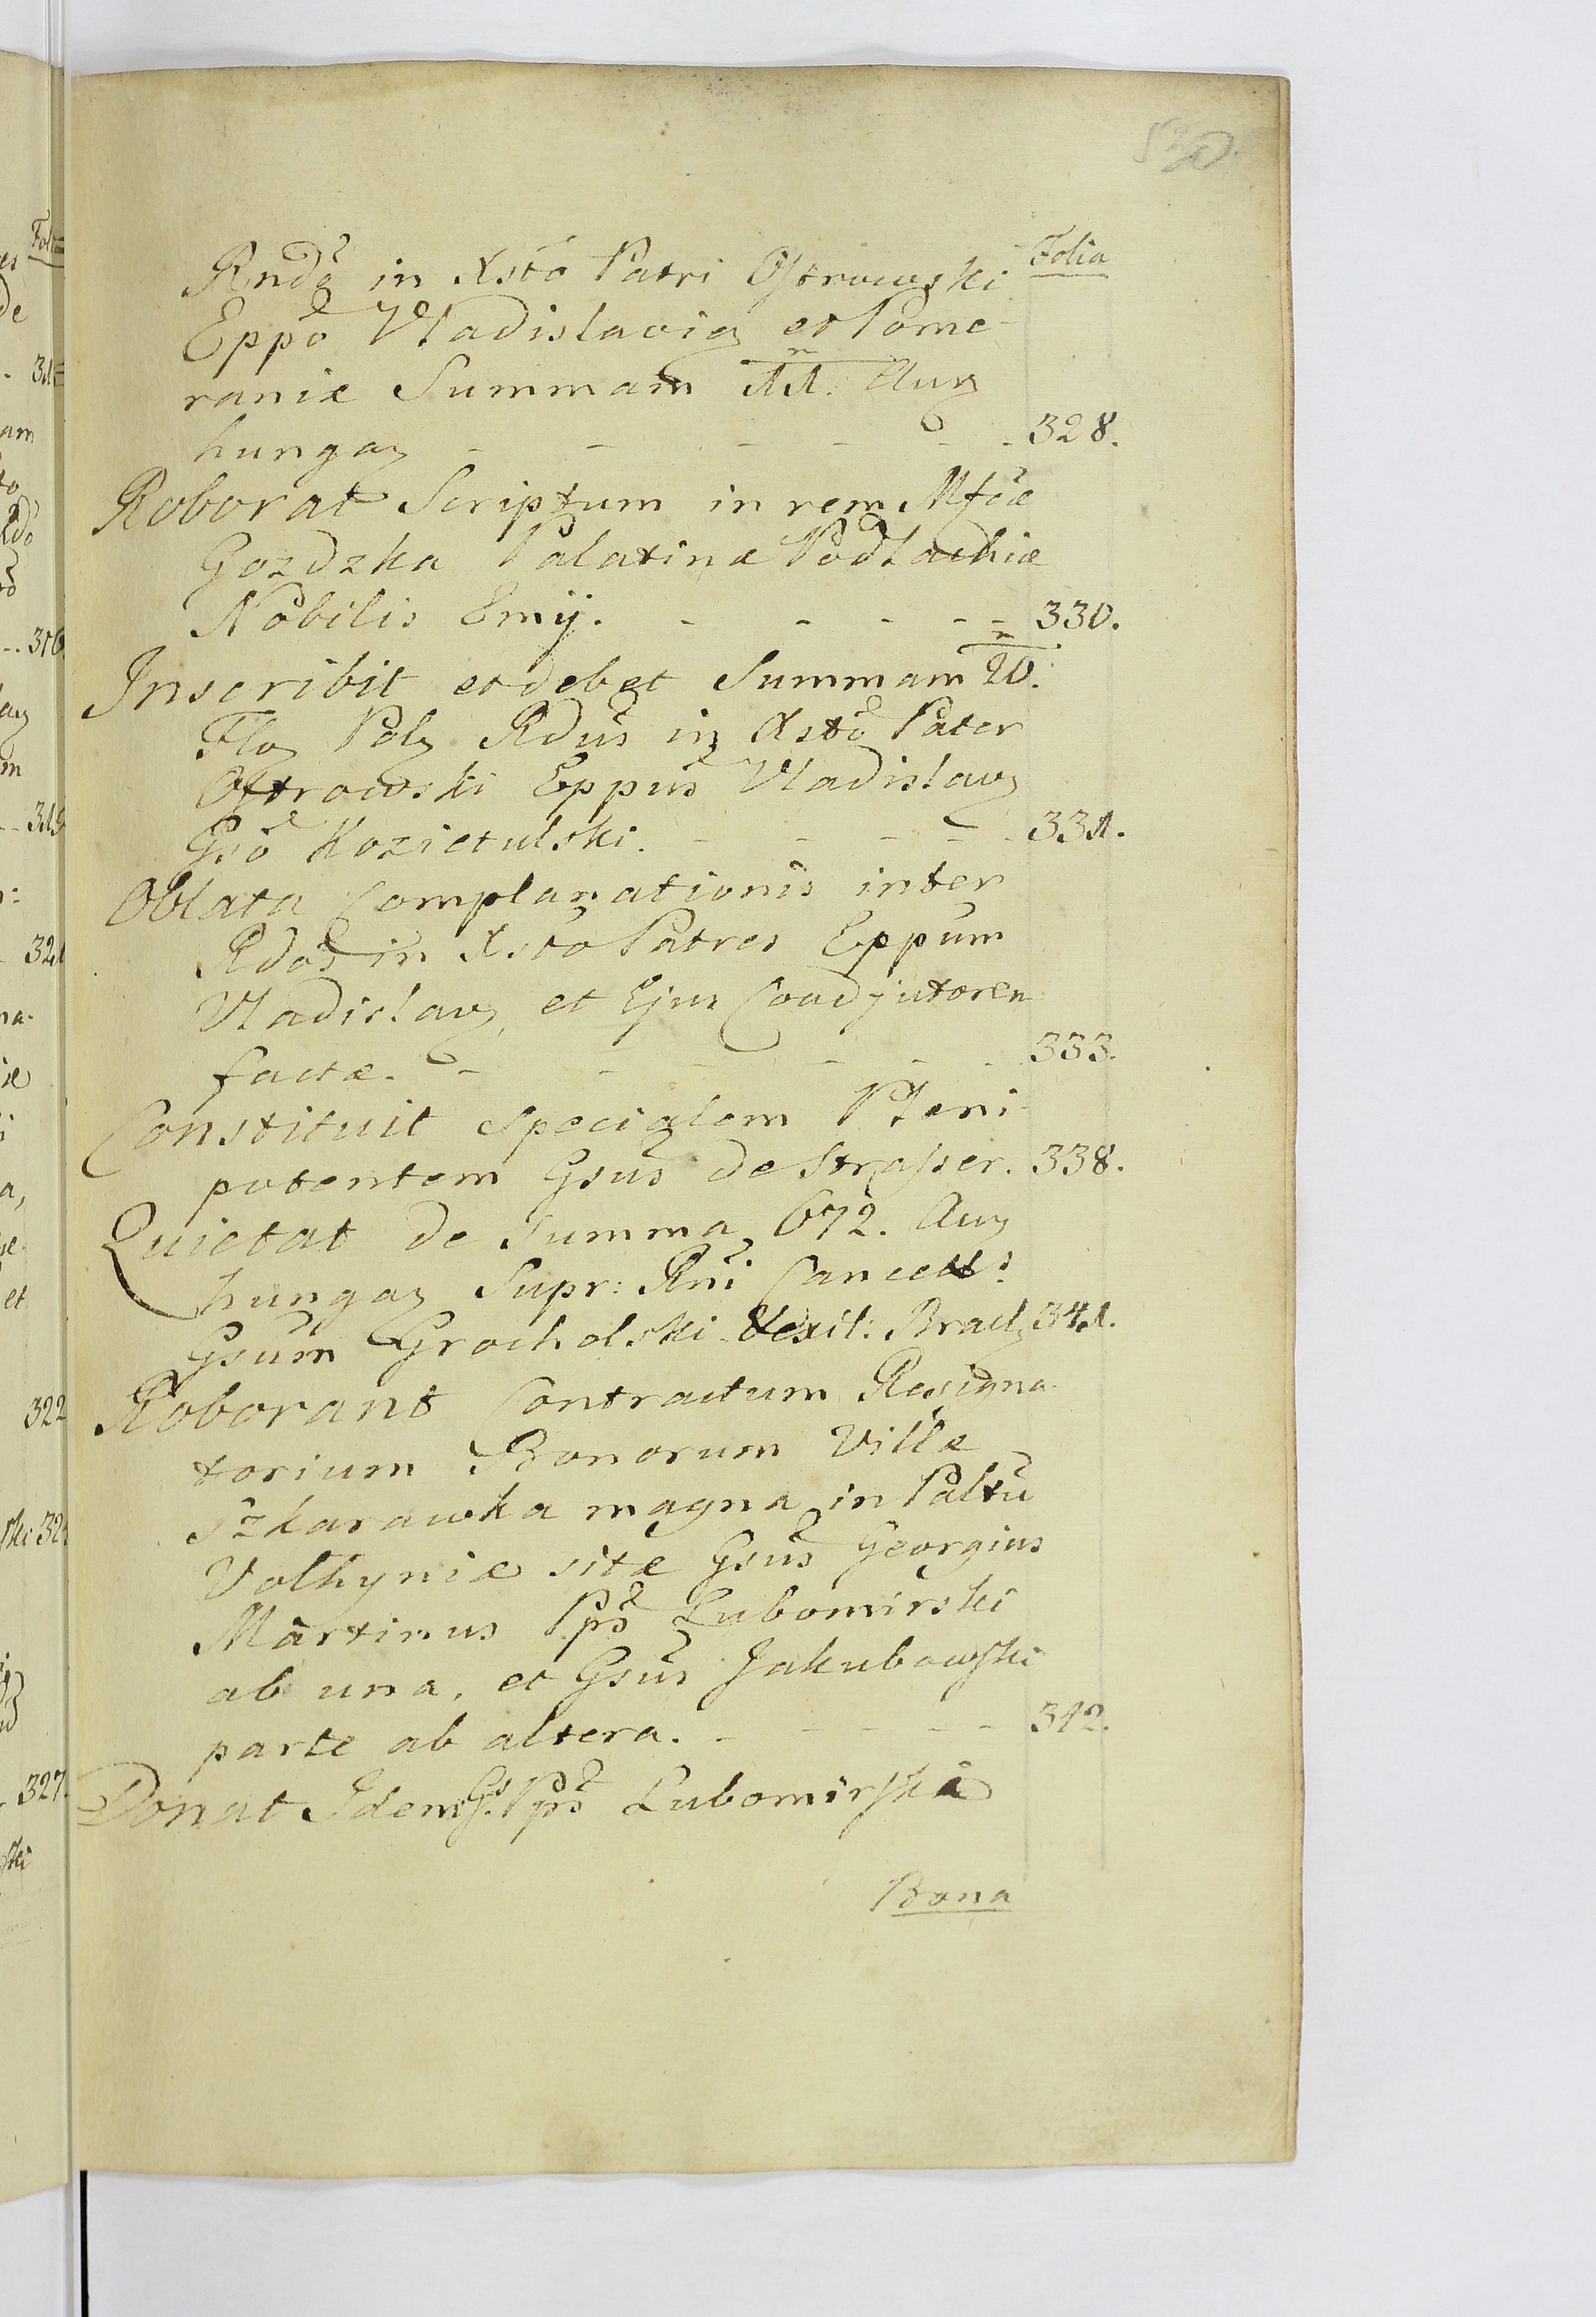 530.
Folia
Rndo in Xsto Patri Ostrowski
Eppo Vladislavien et Pome-
raniæ Summam 11. Aur
hungar - - - - - - 328.
Roborat Scriptum in rem Mfcæ
Gozdzka Palatinæ Podlachiæ
Nobilis Emij. - - - - - 330.
Inscribit et debet Summam 20.
Flor Pol Rdus in Xsto Pater
Ostrowski Eppus Vladislav
Gso Kozietulski. - - - - 331.
Oblata Complanationis inter
Rdos in Xsto Patres Eppum
Vladislav et Ejus Coadjutorem
factæ. - - - - - - 333.
Constituit Specialem Pleni-
potentem Gsus de Strasser. 338.
Quietat de Summa 672. Aur
hungar Supr: Rni Cancell:
Gsum Grocholski Vexil: Bracl 341.
Roborant Contractum Resigna-
torium Bonorum Villæ
Szkarawka magna in Paltu
Volhyniæ sitæ Gsus Georgius
Martinus Pps Lubomirski
ab una, et Gsus Jakubowski
parte ab altera. - - - - - 342.
Donat Idem Gs. Pps Lubomirski
Bona